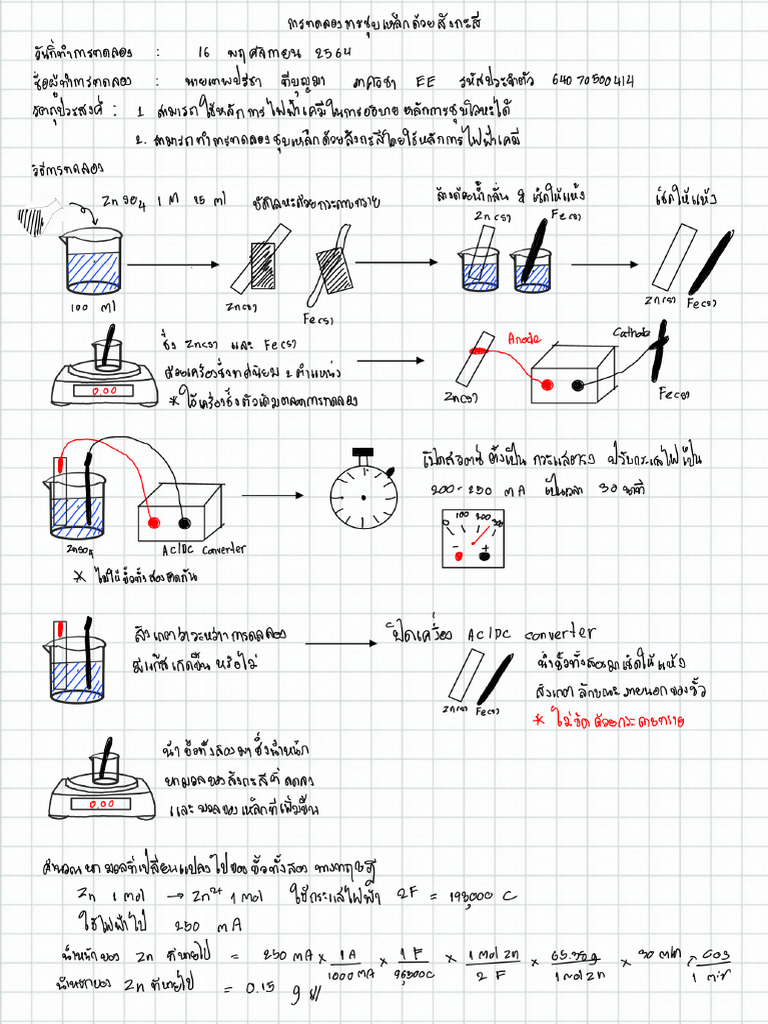 การทดลองการชุบเหล็กด้วยสังกะสี
วันที่ทำการทดลอง : 16 พฤศจิกายน 2564
ชื่อผู้ทำการทดลอง : นายเทพปรีชา ภาควิชา EE รหัสประจำตัว 64070500414
วัตถุประสงค์ : 1. สามารถใช้หลักการไฟฟ้าเคมีในการอธิบายหลักการชุบโลหะได้
2. สามารถทำการทดลองชุบเหล็กด้วยสังกะสีโดยใช้หลักการไฟฟ้าเคมี
วิธีการทดลอง
ZnSO4 1 M 75 ml
100 ml
ขัดโลหะด้วยกระดาษทราย
Zn(s)
Fe(s)
ล้างด้วยน้ำกลั่น & เช็ดให้แห้ง
Zn(s) Fe(s)
เช็ดให้แห้ง
Zn(s) Fe(s)
0.00
ชั่ง Zn(s) และ Fe(s)
ด้วยเครื่องชั่งทศนิยม 2 ตำแหน่ง
* ใช้เครื่องชั่งตัวเดิมตลอดการทดลอง
Anode Cathode
Zn(s) Fe(s)
ZnSO4
AC/DC converter
* ไม่ให้ขั้วทั้งสองติดกัน
เปิดสวิตซ์ ตั้งเป็น กระแสตรง ปรับกระแสไฟเป็น
200-250 mA เป็นเวลา 30 นาที
0 100 200 300
- +
สังเกตว่าระหว่างการทดลอง
มีแก๊สเกิดขึ้น หรือไม่
ปิดเครื่อง AC/DC converter
Zn(s) Fe(s)
นำขั้วทั้งสองมาเช็ดให้แห้ง
สังเกตลักษณะภายนอกของขั้ว
* ไม่ขัดด้วยกระดาษทราย
0.00
นำขั้วทั้งสองมาชั่งน้ำหนัก
หามวลของสังกะสีที่ลดลง
และมวลของเหล็กที่เพิ่มขึ้น
คำนวณหามวลที่เปลี่ยนแปลงไปของขั้วทั้งสอง ทางทฤษฎี
Zn 1 mol → Zn2+ 1 mol ใช้กระแสไฟฟ้า 2F = 193,000 C
ใช้ไฟฟ้าไป 250 mA
น้ำหนักของ Zn ที่หายไป = 250 mA × 1 A/1000 mA × 1 F/96500C × 1 mol Zn/2 F × 65.38g/1 mol Zn × 30 min × 60s/1 min
น้ำหนักของ Zn ที่หายไป = 0.15 g